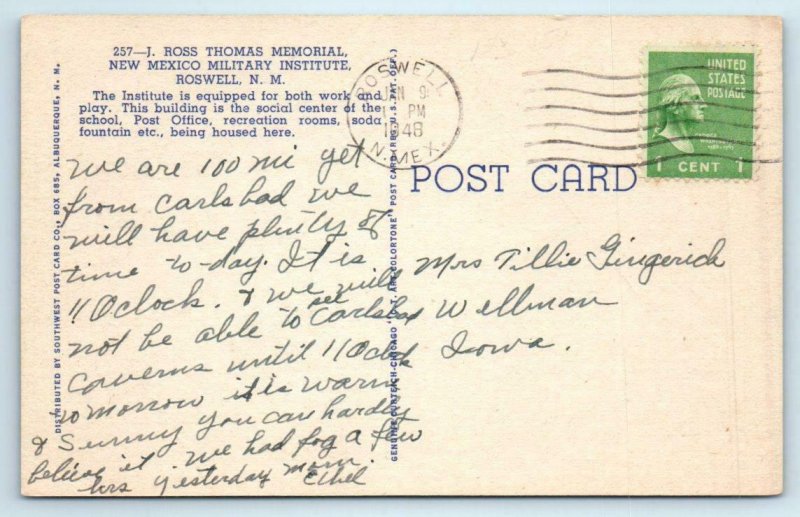 257—J. ROSS THOMAS MEMORIAL,
NEW MEXICO MILITARY INSTITUTE,
ROSWELL, N. M.
The Institute is equipped for both work and
play. This building is the social center of the
school, Post Office, recreation rooms, soda
fountain etc., being housed here.
We are 100 mi yet
from Carlsbad we
will have plenty of
time to-day. It is
11 Oclock. & we will
not be able to see Carlsbad
Caverns until 11 Oclock
tomorrow it is warm
& Sunny you can hardly
believe it we had fog a few
hrs yesterday mom.
Ethel
DISTRIBUTED BY SOUTHWEST POST CARD CO., BOX 685, ALBUQUERQUE, N. M.
GENUINE CURTEICH-CHICAGO "C.T. ART-COLORTONE" POST CARD (REG. U.S. PAT. OFF.)
ROSWELL
JAN 9
PM
1948
N. MEX.
UNITED
STATES
POSTAGE
1 CENT 1
POST CARD
Mrs Tillie Gingerich
Wellman
Iowa.